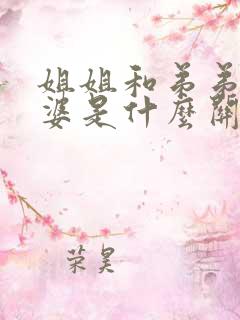 姐姐和弟弟
婆是什麼關
荣昊